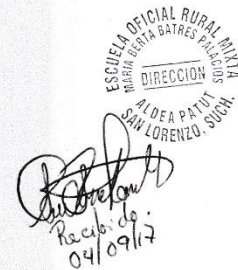 ESCUELA OFICIAL RURAL MIXTA
MARIA BERTA BATRES PALACIOS
DIRECCION
ALDEA PATUT
SAN LORENZO, SUCH.
Recibido.
04/09/17